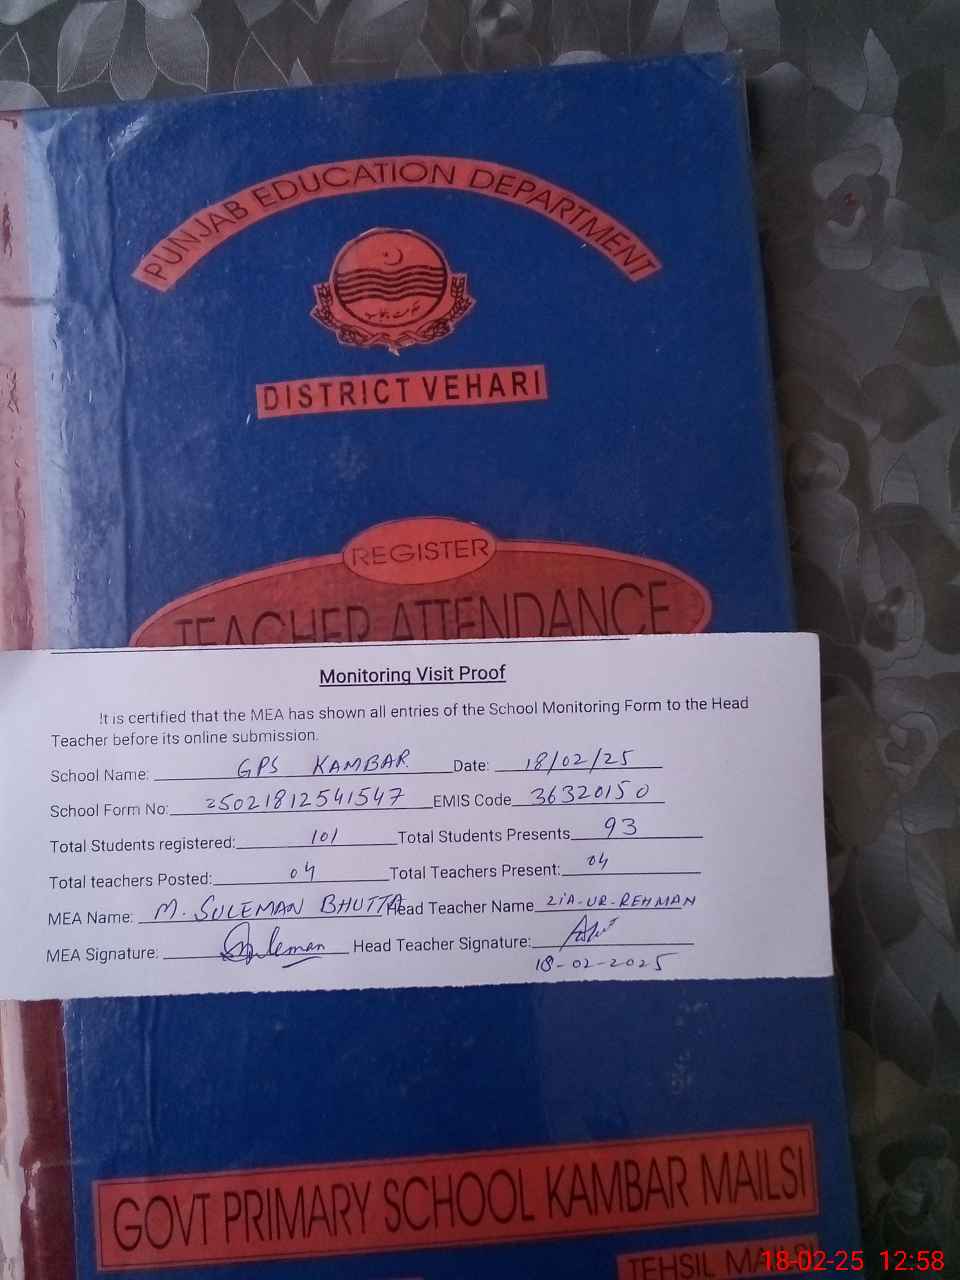 PUNJAB EDUCATION DEPARTMENT
حکومت پنجاب
DISTRICT VEHARI
REGISTER
TEACHER ATTENDANCE
Monitoring Visit Proof
It is certified that the MEA has shown all entries of the School Monitoring Form to the Head
Teacher before its online submission.
School Name: GPS KAMBAR Date: 18/02/25
School Form No: 25021812541547 EMIS Code 36320150
Total Students registered: 101 Total Students Presents 93
Total teachers Posted: 04 Total Teachers Present: 04
MEA Name: M. SULEMAN BHUTTA Head Teacher Name ZIA-UR-REHMAN
MEA Signature: Suleman Head Teacher Signature:
18-02-2025
GOVT PRIMARY SCHOOL KAMBAR MAILSI
TEHSIL MAILSI
18-02-25 12:58